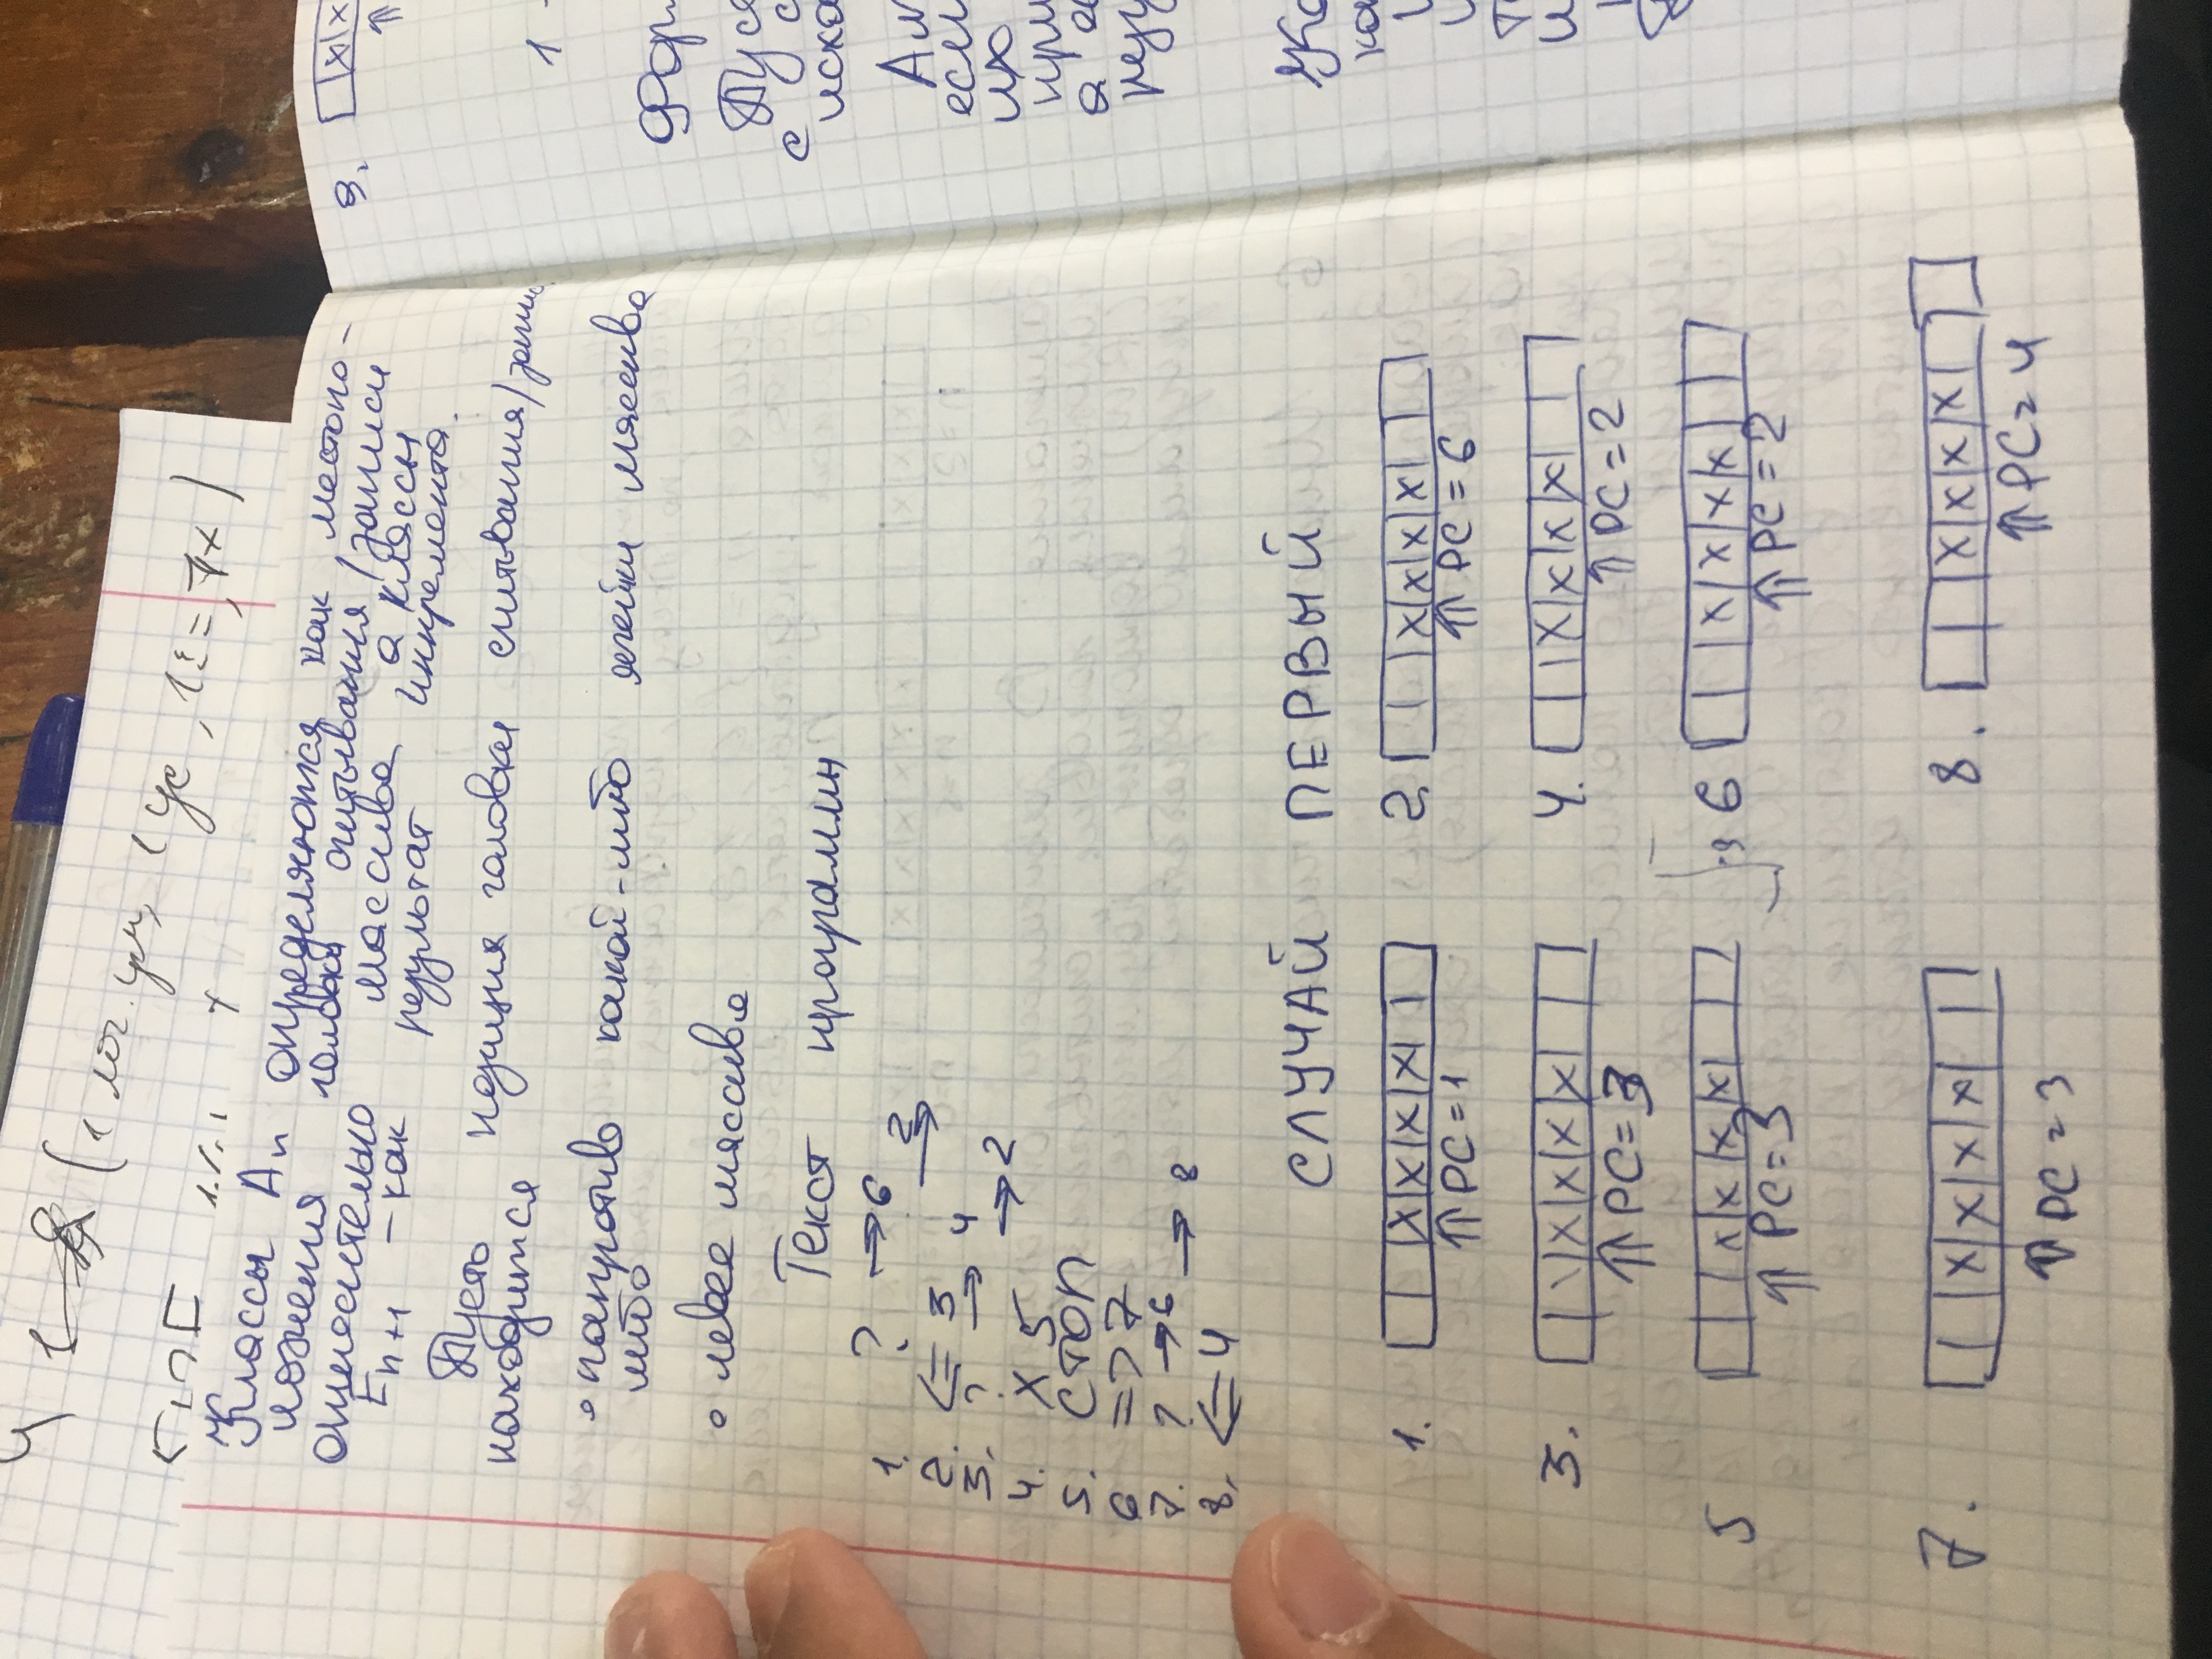 (1 лог. ум, 1 ус, 1 := , 7x)
Классы Aₙ определяются как местопо-
ложения головки считывания/записи
относительно массива а классы
Eₙ₊₁ – как результат инкремента.
Пусть позиция головки считывания/запис
находится
• напротив какой-либо ячейки массива
либо
• левее массива
Текст программы
1. ? → 6
→ 2
2. <= 3
3. ? → 4
→ 2
4. X 5
5. СТОП
6 => 7
7. ? → 6
→ 8
8. <= 4
СЛУЧАЙ ПЕРВЫЙ
1. x x x x
⇑ PC = 1
2. x x x x
⇑ PC = 6
3. x x x x
⇑ PC = 3
4. x x x x
⇑ PC = 2
5 x x x x
⇑ PC = 3
6 x x x x
⇑ PC = 2
7. x x x x
⇑ PC = 3
8. x x x x
⇑ PC = 4
9. x x
⇑
1
Фор
Пус
с с
иска
если
их
при
а
резу